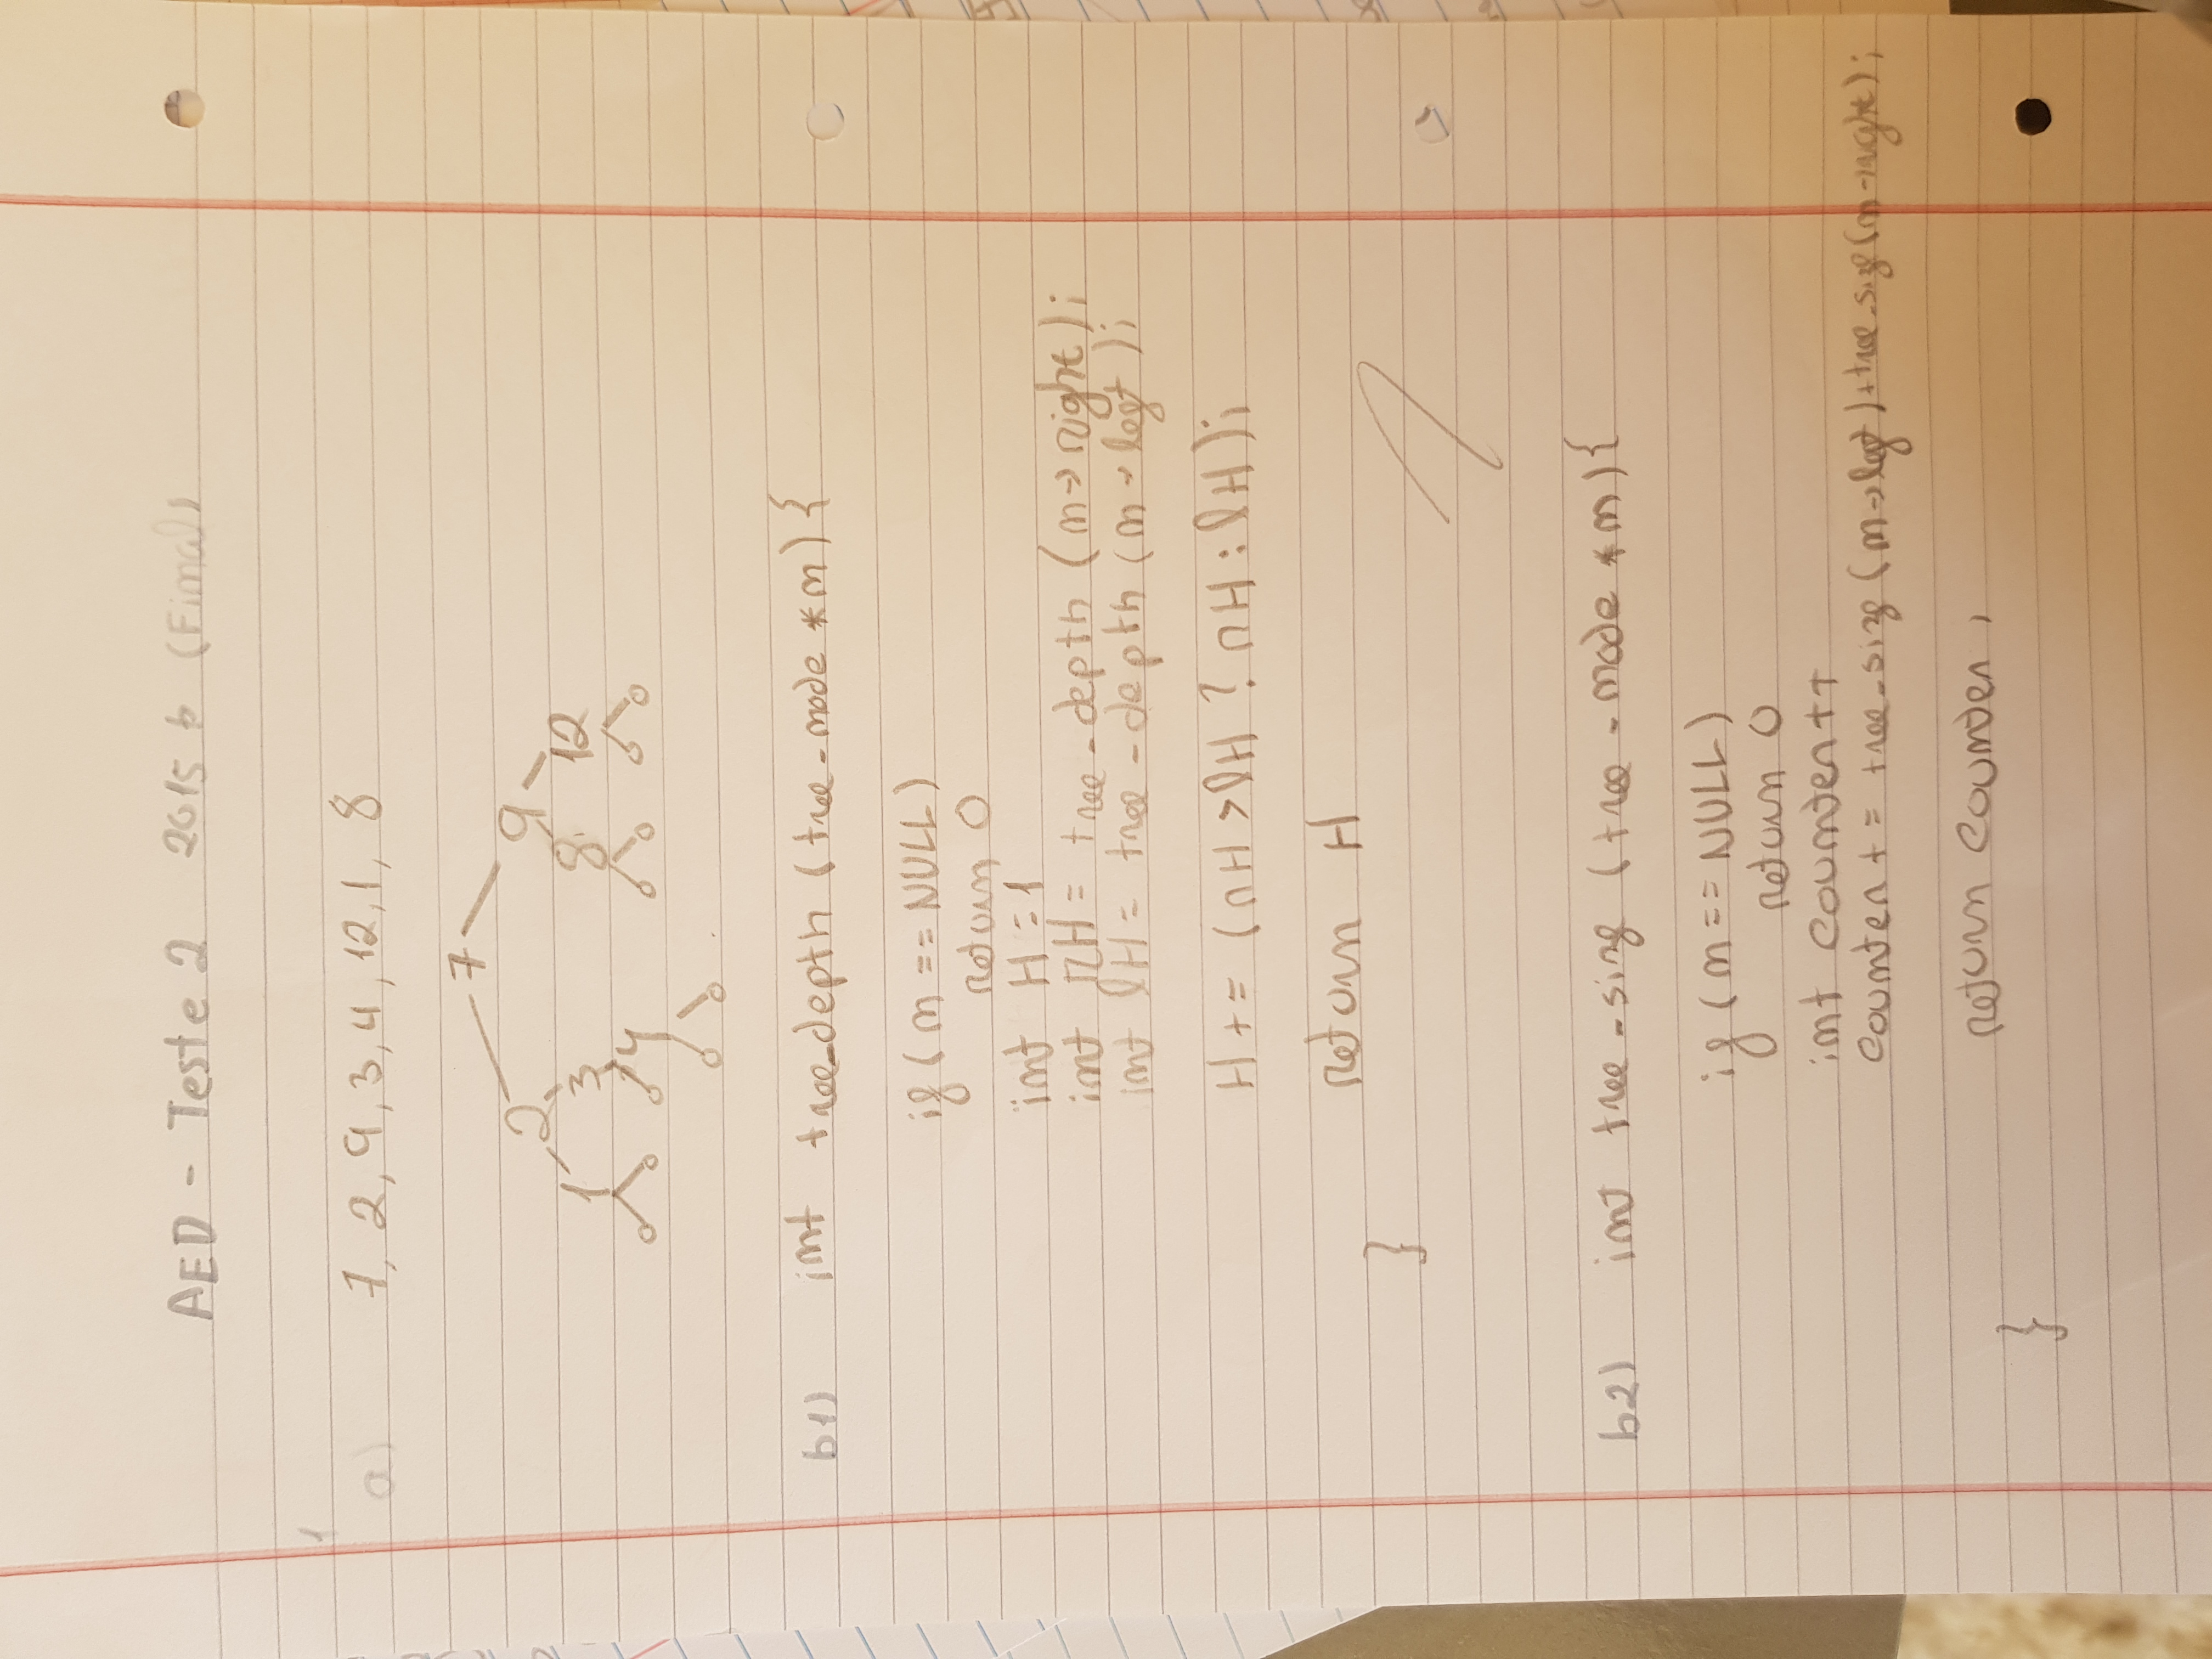 AED - Teste 2 2015 b (Final)
1
a) 7, 2, 9, 3, 4, 12, 1, 8
7
2 9
1 3 8 12
4
b1) int tree_depth (tree_node *n) {
if (n == NULL)
return 0
int H = 1
int rH = tree_depth (n→right);
int lH = tree_depth (n→left);
H += (rH > lH ? rH : lH);
return H
}
b2) int tree_size (tree_node *n) {
if (n == NULL)
return 0
int counter++
counter += tree_size (n→left) + tree_size (n→right);
return counter;
}